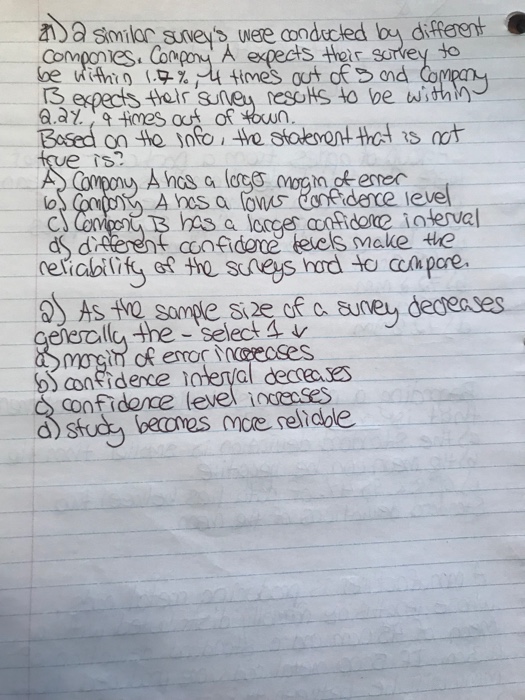 1) 2 similar survey's were conducted by different
companies. Company A expects their survey to
be within 1.7%, 4 times out of 5 and Company
B expects their survey results to be within
2.2%, 9 times out of town.
Based on the info, the statement that is not
true is?
A) Company A has a large mogin of error
b) Company A has a lower confidence level
c) Company B has a larger confidence interval
d) different confidence levels make the
reliability of the surveys hard to compare.
2) As the sample size of a survey decreases
generally the - select 1 ↓
a) margin of error increases
b) confidence interval decreases
c) confidence level increases
d) study becomes more reliable